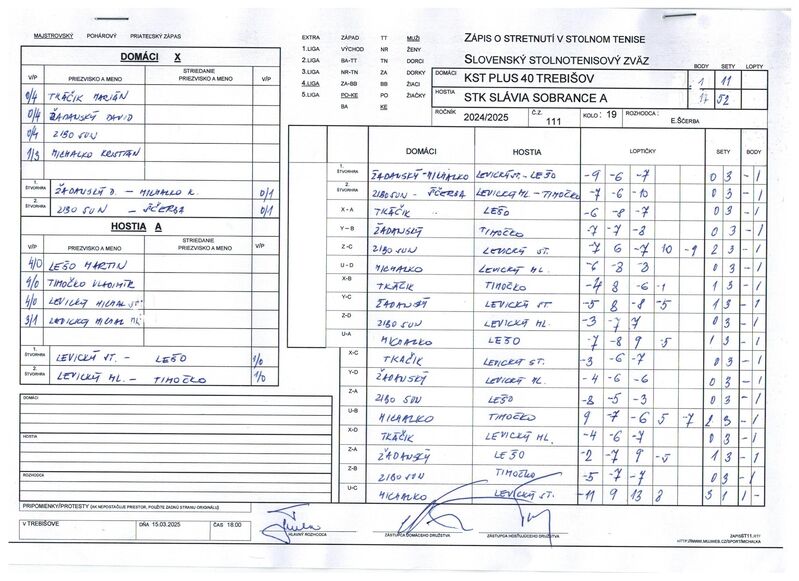 MAJSTROVSKÝ POHÁROVÝ PRIATEĽSKÝ ZÁPAS
DOMÁCI X
V/P PRIEZVISKO A MENO STRIEDANIE PRIEZVISKO A MENO V/P
0/4 TKÁČIK MARIÁN
0/4 ŽADANSKÝ DAVID
0/4 ZIBO SUN
1/3 MICHALKO KRISTIÁN
1. ŠTVORHRA ŽADANSKÝ D. - MICHALKO K. 0/1
2. ŠTVORHRA ZIBO SUN - ŠČERBA 0/1
HOSTIA A
V/P PRIEZVISKO A MENO STRIEDANIE PRIEZVISKO A MENO V/P
4/0 LEŠO MARTIN
4/0 TIMOČKO VLADIMÍR
4/0 LEVICKÝ MICHAL ST.
3/1 LEVICKÝ MICHAL ML.
1. ŠTVORHRA LEVICKÝ ST. - LEŠO 1/0
2. ŠTVORHRA LEVICKÝ ML. - TIMOČKO 1/0
DOMÁCI
HOSTIA
ROZHODCA
PRIPOMIENKY/PROTESTY (AK NEPOSTAČUJE PRIESTOR, POUŽITE ZADNÚ STRANU ORIGINÁLU)
V TREBIŠOVE DŇA 15.03.2025 ČAS 18.00
EXTRA ZÁPAD TT MUŽI
1.LIGA VÝCHOD NR ŽENY
2.LIGA BA-TT TN DORCI
3.LIGA NR-TN ZA DORKY
4.LIGA ZA-BB BB ŽIACI
5.LIGA PO-KE PO ŽIAČKY
BA KE
ZÁPIS O STRETNUTÍ V STOLNOM TENISE
SLOVENSKÝ STOLNOTENISOVÝ ZVÄZ
BODY SETY LOPTY
DOMÁCI KST PLUS 40 TREBIŠOV 1 11
HOSTIA STK SLÁVIA SOBRANCE A 17 52
ROČNÍK 2024/2025 Č.Z. 111 KOLO: 19 ROZHODCA: E.ŠČERBA
DOMÁCI HOSTIA LOPTIČKY SETY BODY
1. ŠTVORHRA ŽADANSKÝ-MICHALKO LEVICKÝ ST.-LEŠO -9 -6 -7 0 3 -1
2. ŠTVORHRA ZIBO SUN - ŠČERBA LEVICKÝ ML - TIMOČKO -7 -6 -10 0 3 -1
X-A TKÁČIK LEŠO -6 -8 -7 0 3 -1
Y-B ŽADANSKÝ TIMOČKO -7 -7 -8 0 3 -1
Z-C ZIBO SUN LEVICKÝ ST. -7 6 -7 10 -9 2 3 -1
U-D MICHALKO LEVICKÝ ML. -6 -8 -8 0 3 -1
X-B TKÁČIK TIMOČKO -4 8 -6 -1 1 3 -1
Y-C ŽADANSKÝ LEVICKÝ ST. -5 8 -8 -5 1 3 -1
Z-D ZIBO SUN LEVICKÝ ML. -3 -7 -7 0 3 -1
U-A MICHALKO LEŠO -7 -8 9 -5 1 3 -1
X-C TKÁČIK LEVICKÝ ST. -3 -6 -7 0 3 -1
Y-D ŽADANSKÝ LEVICKÝ ML. -4 -6 -6 0 3 -1
Z-A ZIBO SUN LEŠO -8 -5 -3 0 3 -1
U-B MICHALKO TIMOČKO 9 -7 -6 5 -7 2 3 -1
X-D TKÁČIK LEVICKÝ ML. -4 -6 -7 0 3 -1
Z-A ŽADANSKÝ LEŠO -2 -7 9 -5 1 3 -1
Z-B ZIBO SUN TIMOČKO -5 -7 -7 0 3 -1
U-C MICHALKO LEVICKÝ ST. -11 9 13 8 3 1 1 -
HLAVNÝ ROZHODCA
ZÁSTUPCA DOMÁCEHO DRUŽSTVA
ZÁSTUPCA HOSŤUJÚCEHO DRUŽSTVA
ZAPISST11.H17
HTTP://WWW.MUJWEB.CZ/SPORT/MICHALKA